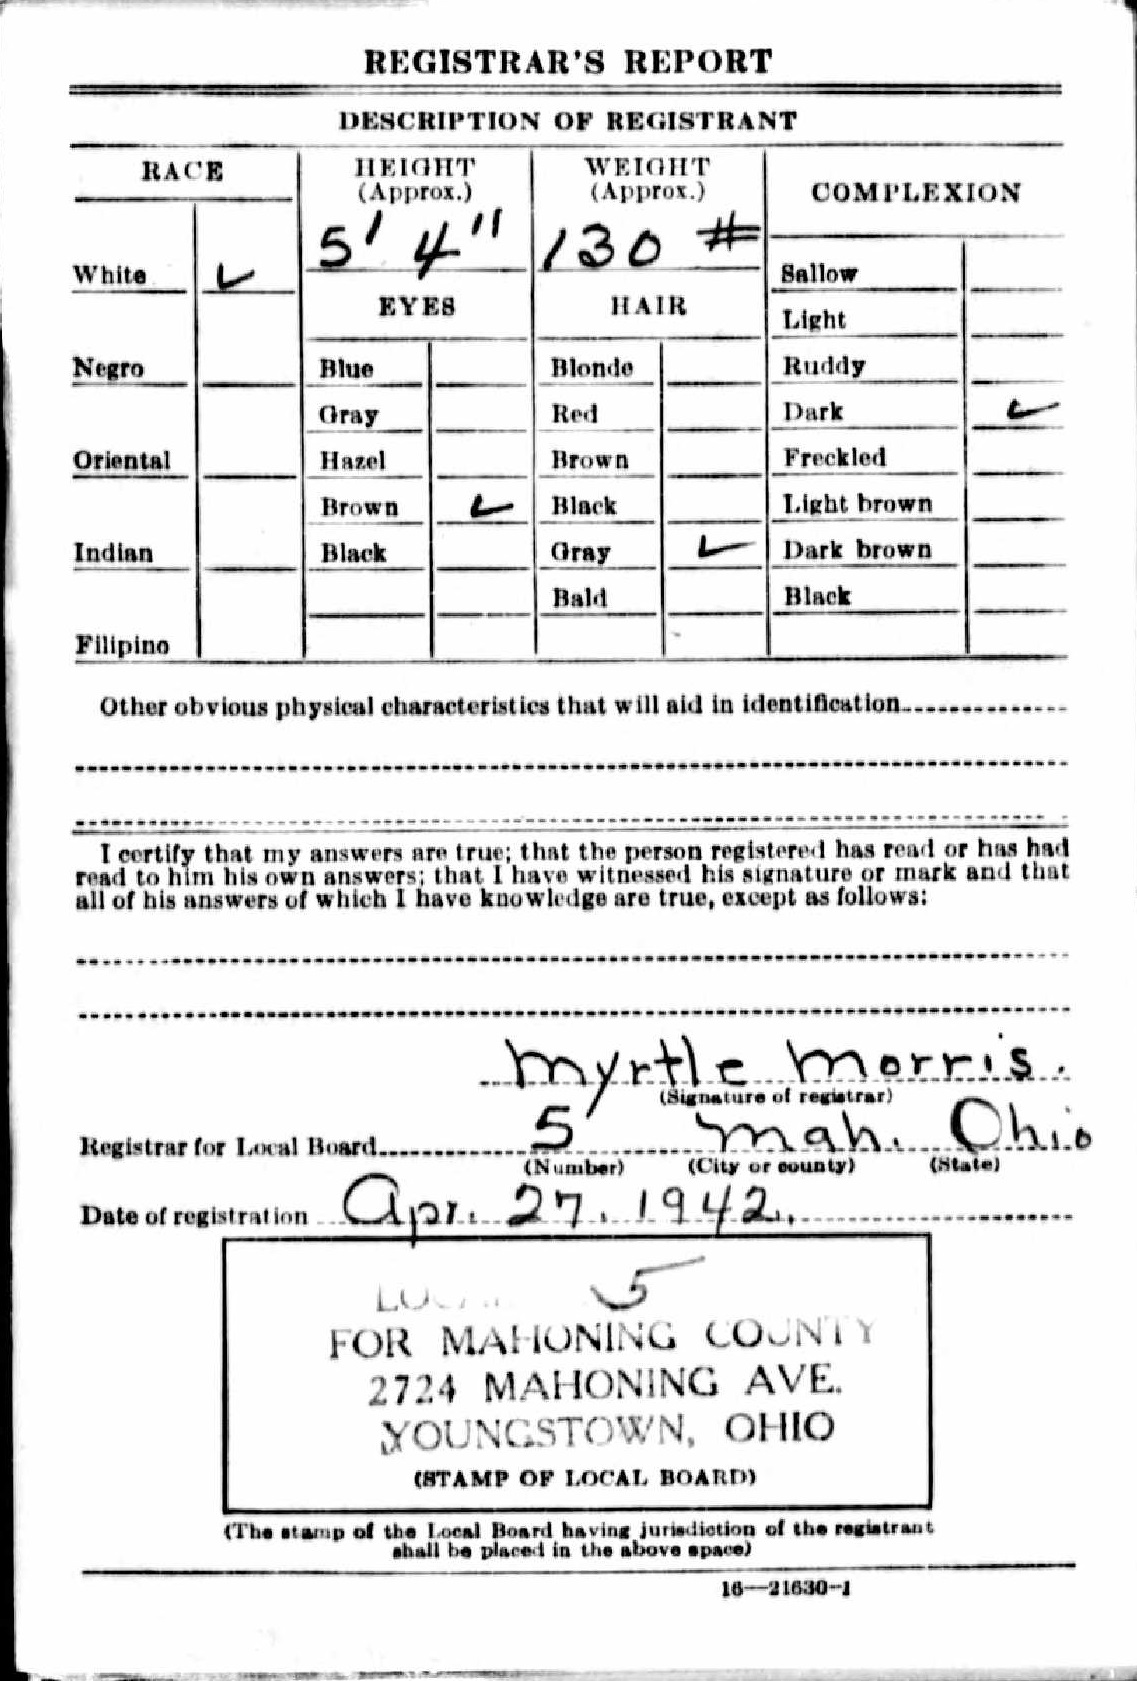 REGISTRAR'S REPORT
DESCRIPTION OF REGISTRANT
RACE
White ✓
Negro
Oriental
Indian
Filipino
HEIGHT
(Approx.)
5' 4"
EYES
Blue
Gray
Hazel
Brown ✓
Black
WEIGHT
(Approx.)
130 #
HAIR
Blonde
Red
Brown
Black
Gray ✓
Bald
COMPLEXION
Sallow
Light
Ruddy
Dark ✓
Freckled
Light brown
Dark brown
Black
Other obvious physical characteristics that will aid in identification
I certify that my answers are true; that the person registered has read or has had
read to him his own answers; that I have witnessed his signature or mark and that
all of his answers of which I have knowledge are true, except as follows:
Myrtle Morris.
(Signature of registrar)
Registrar for Local Board 5 Mah. Ohio
(Number) (City or county) (State)
Date of registration Apr. 27, 1942.
5
FOR MAHONING COUNTY
2724 MAHONING AVE.
YOUNGSTOWN, OHIO
(STAMP OF LOCAL BOARD)
(The stamp of the Local Board having jurisdiction of the registrant
shall be placed in the above space)
16—21630-1